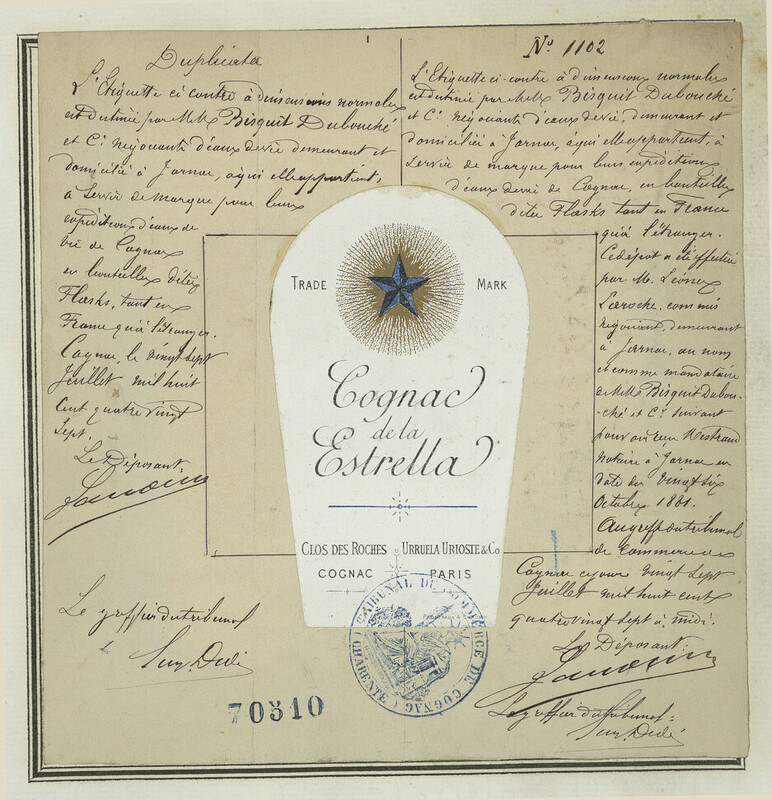 Duplicata
L'Etiquette ci contre à dimensions normales
est destinée par MM Bisquit Dubouché
et Cie négociants d'eaux de vie demeurant et
domiciliés à Jarnac, à qui elle appartient,
à servir de marque pour leurs
expéditions d'eaux de
vie de Cognac
en bouteilles dites
Flasks, tant en
France qu'à l'étranger.
Cognac, le vingt sept
Juillet mil huit
cent quatre vingt
sept.
Le Déposant
Le greffier du tribunal
70310
No 1102
L'Etiquette ci-contre à dimensions normales
est destinée par MM Bisquit Dubouché
et Cie négociants d'eaux de vie, demeurant et
domiciliés à Jarnac, à qui elle appartient, à
servir de marque pour leurs expéditions
d'eaux de vie de Cognac, en bouteilles
dites Flasks tant en France
qu'à l'étranger.
Ce dépôt a été effectué
par M. Léonce
Laroche, commis
négociant, demeurant
à Jarnac, au nom
et comme mandataire
de MM Bisquit Dubou-
ché et Cie suivant
pouvoir reçu
notaire à Jarnac en
date du vingt six
Octobre 1881.
Au greffe du tribunal
de commerce de
Cognac ce jour vingt sept
Juillet mil huit cent
quatre vingt sept à midi.
Le Déposant:
Le greffier du tribunal:
TRADE MARK
Cognac
de la
Estrella
CLOS DES ROCHES URRUELA URIOSTE & Co
COGNAC PARIS
TRIBUNAL DE COMMERCE DE COGNAC (CHARENTE)